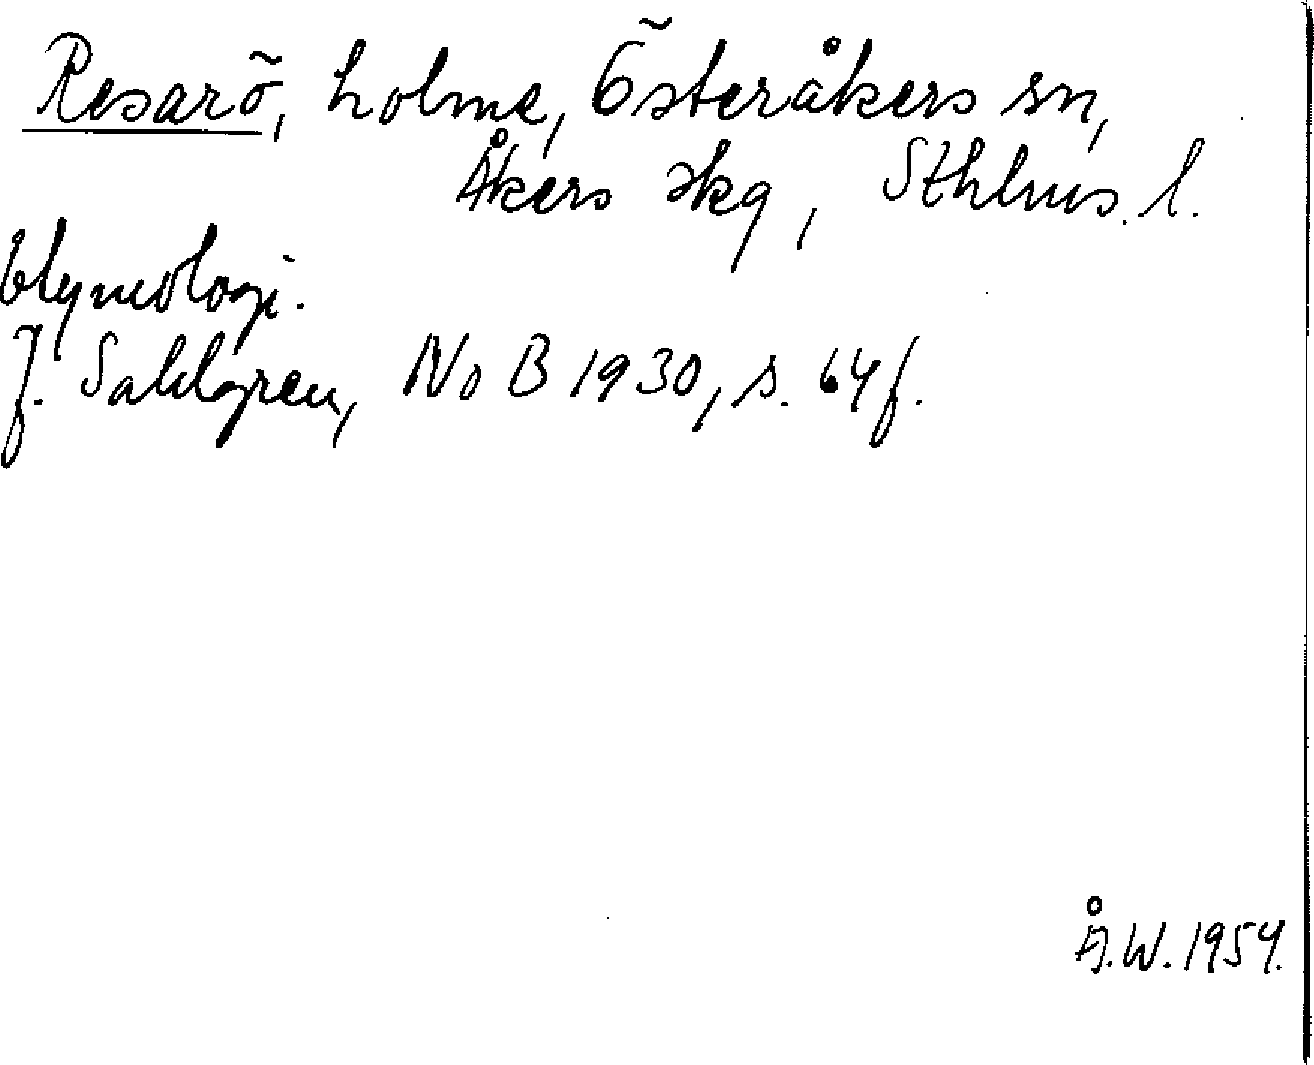 Resarö, holme, Österåkers sn,
Åkers skg, Sthlms. l.
Etymologi.
J. Sahlgren, NoB 1930, s. 64 f.
Å.W. 1954.